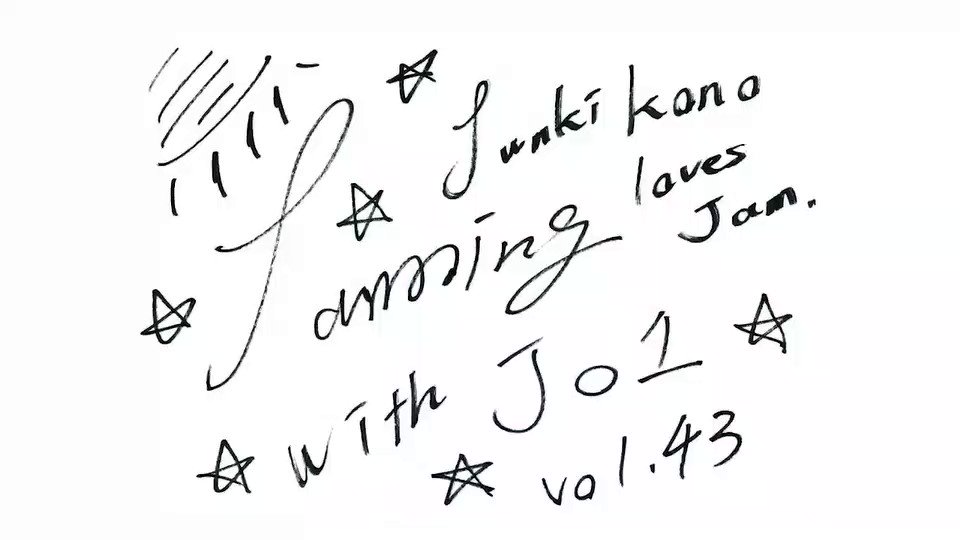 Junki kono
loves
Jam.
Jamming
with JO1
vol.43